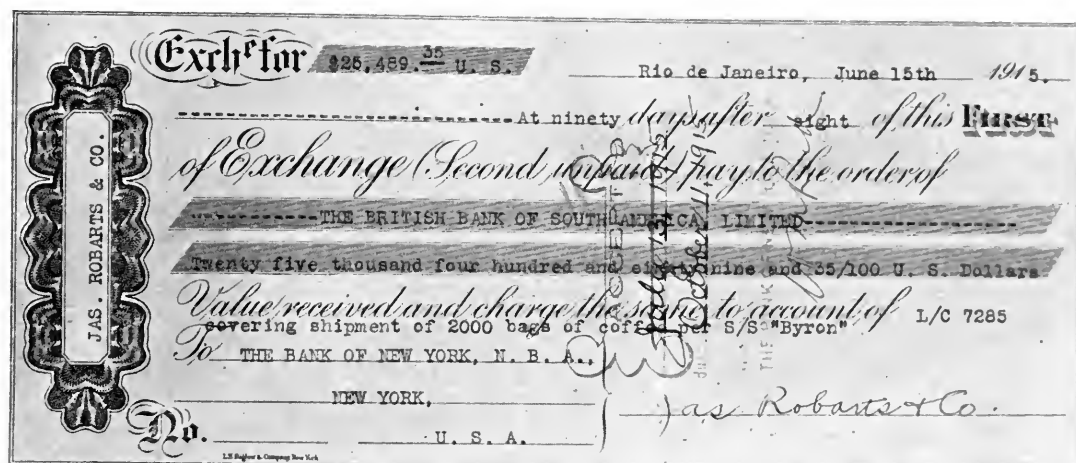 Exchᵉ for $25,489.35 U. S.
Rio de Janeiro, June 15th 1915.
At ninety days after sight of this FIRST
of Exchange (Second unpaid) pay to the order of
THE BRITISH BANK OF SOUTH AMERICA, LIMITED
Twenty five thousand four hundred and eighty nine and 35/100 U. S. Dollars
Value received and charge the same to account of L/C 7285
covering shipment of 2000 bags of coffee per S/S "Byron"
To THE BANK OF NEW YORK, N. B. A.,
NEW YORK,
U. S. A.
No.
Jas Robarts & Co.
JAS. ROBARTS & CO.
ACCEPTED
July 13 1915
October 11, 191